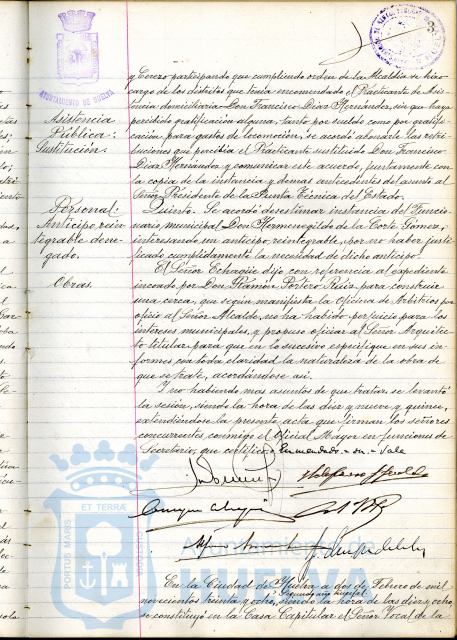 AYUNTAMIENTO DE HUELVA
y Cerero participando que cumpliendo orden de la Alcaldía se hizo
cargo de los distritos que tenía encomendado el Practicante de Asis-
tencia domiciliaria Don Francisco Díaz Hernández, sin que haya
percibido gratificación alguna, tanto por sueldo como por gratifi-
cación para gastos de locomoción, se acordó abonarle las retri-
buciones que percibía el Practicante sustituido Don Francisco
Díaz Hernández y comunicar este acuerdo, juntamente con
la copia de la instancia y demas antecedentes del asunto al
Señor Presidente de la Junta Técnica del Estado.
Asistencia
Pública:
Sustitución.
Quinto. Se acordó desestimar instancia del Funcio-
nario municipal Don Hermenegildo de la Corte Gómez,
interesando un anticipo reintegrable, por no haber justi-
ficado cumplidamente la necesidad de dicho anticipo.
Personal:
Anticipo rein-
tegrable dene-
gado.
El Señor Echagüe dijo con referencia al expediente
incoado por Don Ramón Portero Ruiz para construir
una cerca, que según manifiesta la Oficina de Arbitrios por
oficio al Señor Alcalde, no ha habido perjuicio para los
intereses municipales, y propuso oficiar al Señor Arquitec-
to titular para que en lo sucesivo especifique en sus in-
formes con toda claridad la naturaleza de la obra de
que se trate, acordándose así.
Obras.
Y no habiendo mas asuntos de que tratar, se levantó
la sesión, siendo la hora de las diez y nueve y quince,
extendiéndose la presente acta que firman los señores
concurrentes, conmigo el Oficial Mayor en funciones de
Secretario, que certifico. Enmendado = su = Vale
ET TERRA
PORTUS MARIS
Ayuntamiento de
HUELVA
En la Ciudad de Huelva a dos de Febrero de mil
novecientos treinta y ocho, Segundo año triunfal, siendo la hora de las diez y ocho,
se constituyó en la Casa Capitular el Señor Vocal de la